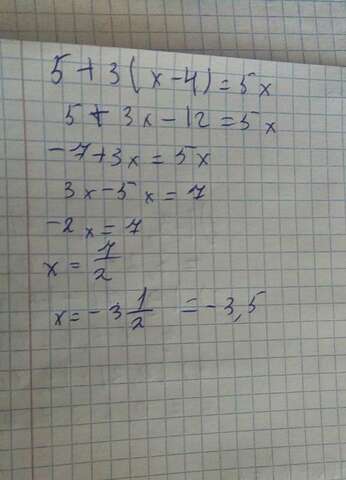 5 + 3(x-4) = 5x
5 + 3x - 12 = 5x
-7 + 3x = 5x
3x - 5x = 7
-2x = 7
x = 7/2
x = -3 1/2 = -3,5